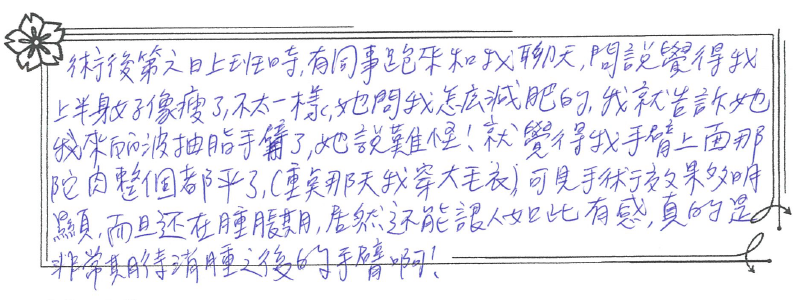 術後第六日上班時,有同事跑來和我聊天,問說覺得我
上半身好像瘦了,不太一樣,她問我怎麼減肥的,我就告訴她
我來丽波抽脂手臂了,她說難怪!就覺得我手臂上面那
陀肉整個都平了,(重點那天我穿大毛衣)可見手術效果多明
顯,而且还在腫脹期,居然还能讓人如此有感,真的是
非常期待消腫之後的手臂啊!